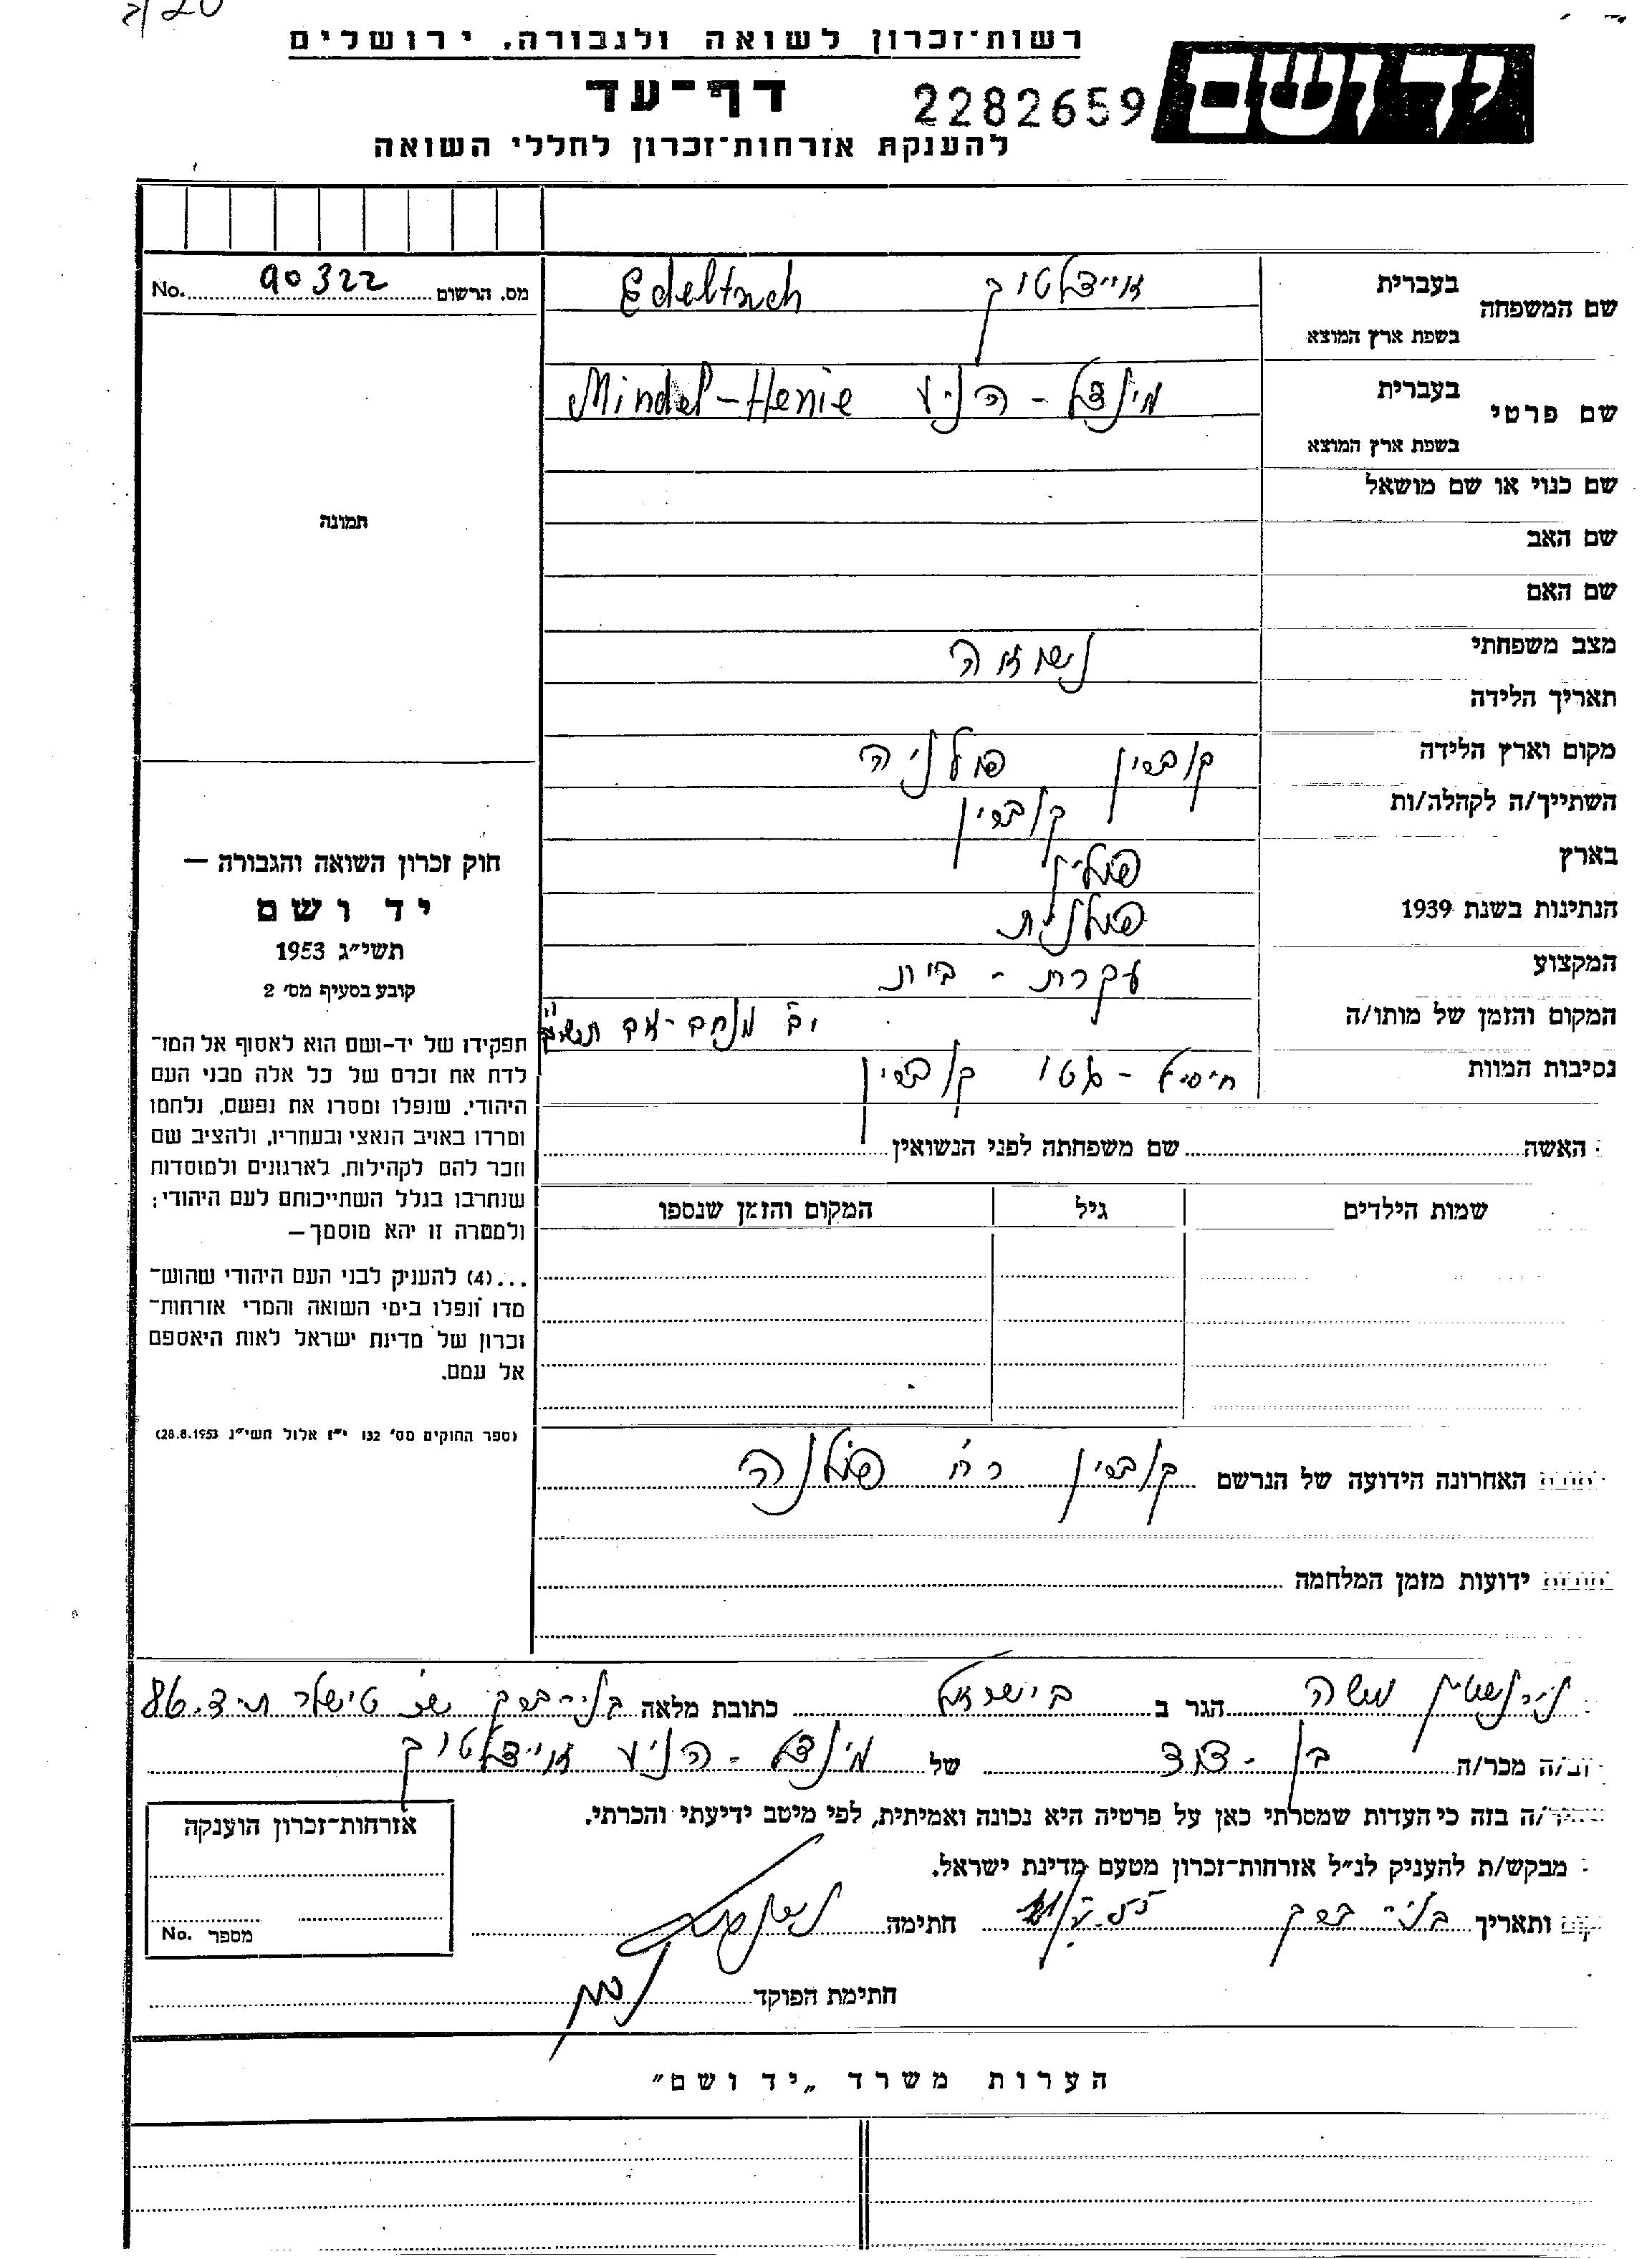 רשות־זכרון לשואה ולגבורה, ירושלים
יד ושם
דף־עד
2282659
להענקת אזרחות־זכרון לחללי השואה
מס. הרשום 90322 No.
תמונה
חוק זכרון השואה והגבורה —
יד ושם
תשי״ג 1953
קובע בסעיף מס׳ 2
תפקידו של יד-ושם הוא לאסוף אל המו־
לדת את זכרם של כל אלה מבני העם
היהודי, שנפלו ומסרו את נפשם, נלחמו
ומרדו באויב הנאצי ובעוזריו, ולהציב שם
וזכר להם לקהילות, לארגונים ולמוסדות
שנחרבו בגלל השתייכותם לעם היהודי;
ולמטרה זו יהא מוסמך —
...(4) להעניק לבני העם היהודי שהוש־
מדו ונפלו בימי השואה והמרי אזרחות־
זכרון של מדינת ישראל לאות היאספם
אל עמם.
(ספר החוקים מס׳ 132 י״ז אלול תשי״ג 28.8.1953)
שם המשפחה
בעברית אויידלטוך Edeltuch
בשפת ארץ המוצא
שם פרטי
בעברית מינדל - הניע Mindel-Henie
בשפת ארץ המוצא
שם כנוי או שם מושאל
שם האב
שם האם
מצב משפחתי נשואה
תאריך הלידה
מקום וארץ הלידה קוברין פולניה
השתייך/ה לקהלה/ות קוברין
בארץ פולין
הנתינות בשנת 1939 פולנית
המקצוע עקרת - בית
המקום והזמן של מותו/ה מנחם-אב
נסיבות המוות חיסול - גטו קוברין
האשה שם משפחתה לפני הנשואין
שמות הילדים גיל המקום והזמן שנספו
האחרונה הידועה של הנרשם קוברין
ידועות מזמן המלחמה
משה הגר ב בישראל כתובת מלאה בני-ברק ת.ד. 86
מכר/ה בן - דוד של מינדל - הניע אויידלטוך
/ה בזה כי העדות שמסרתי כאן על פרטיה היא נכונה ואמיתית, לפי מיטב ידיעתי והכרתי.
מבקש/ת להעניק לנ״ל אזרחות־זכרון מטעם מדינת ישראל.
ותאריך בני ברק חתימה
חתימת הפוקד
אזרחות־זכרון הוענקה
מספר No.
הערות משרד „יד ושם״